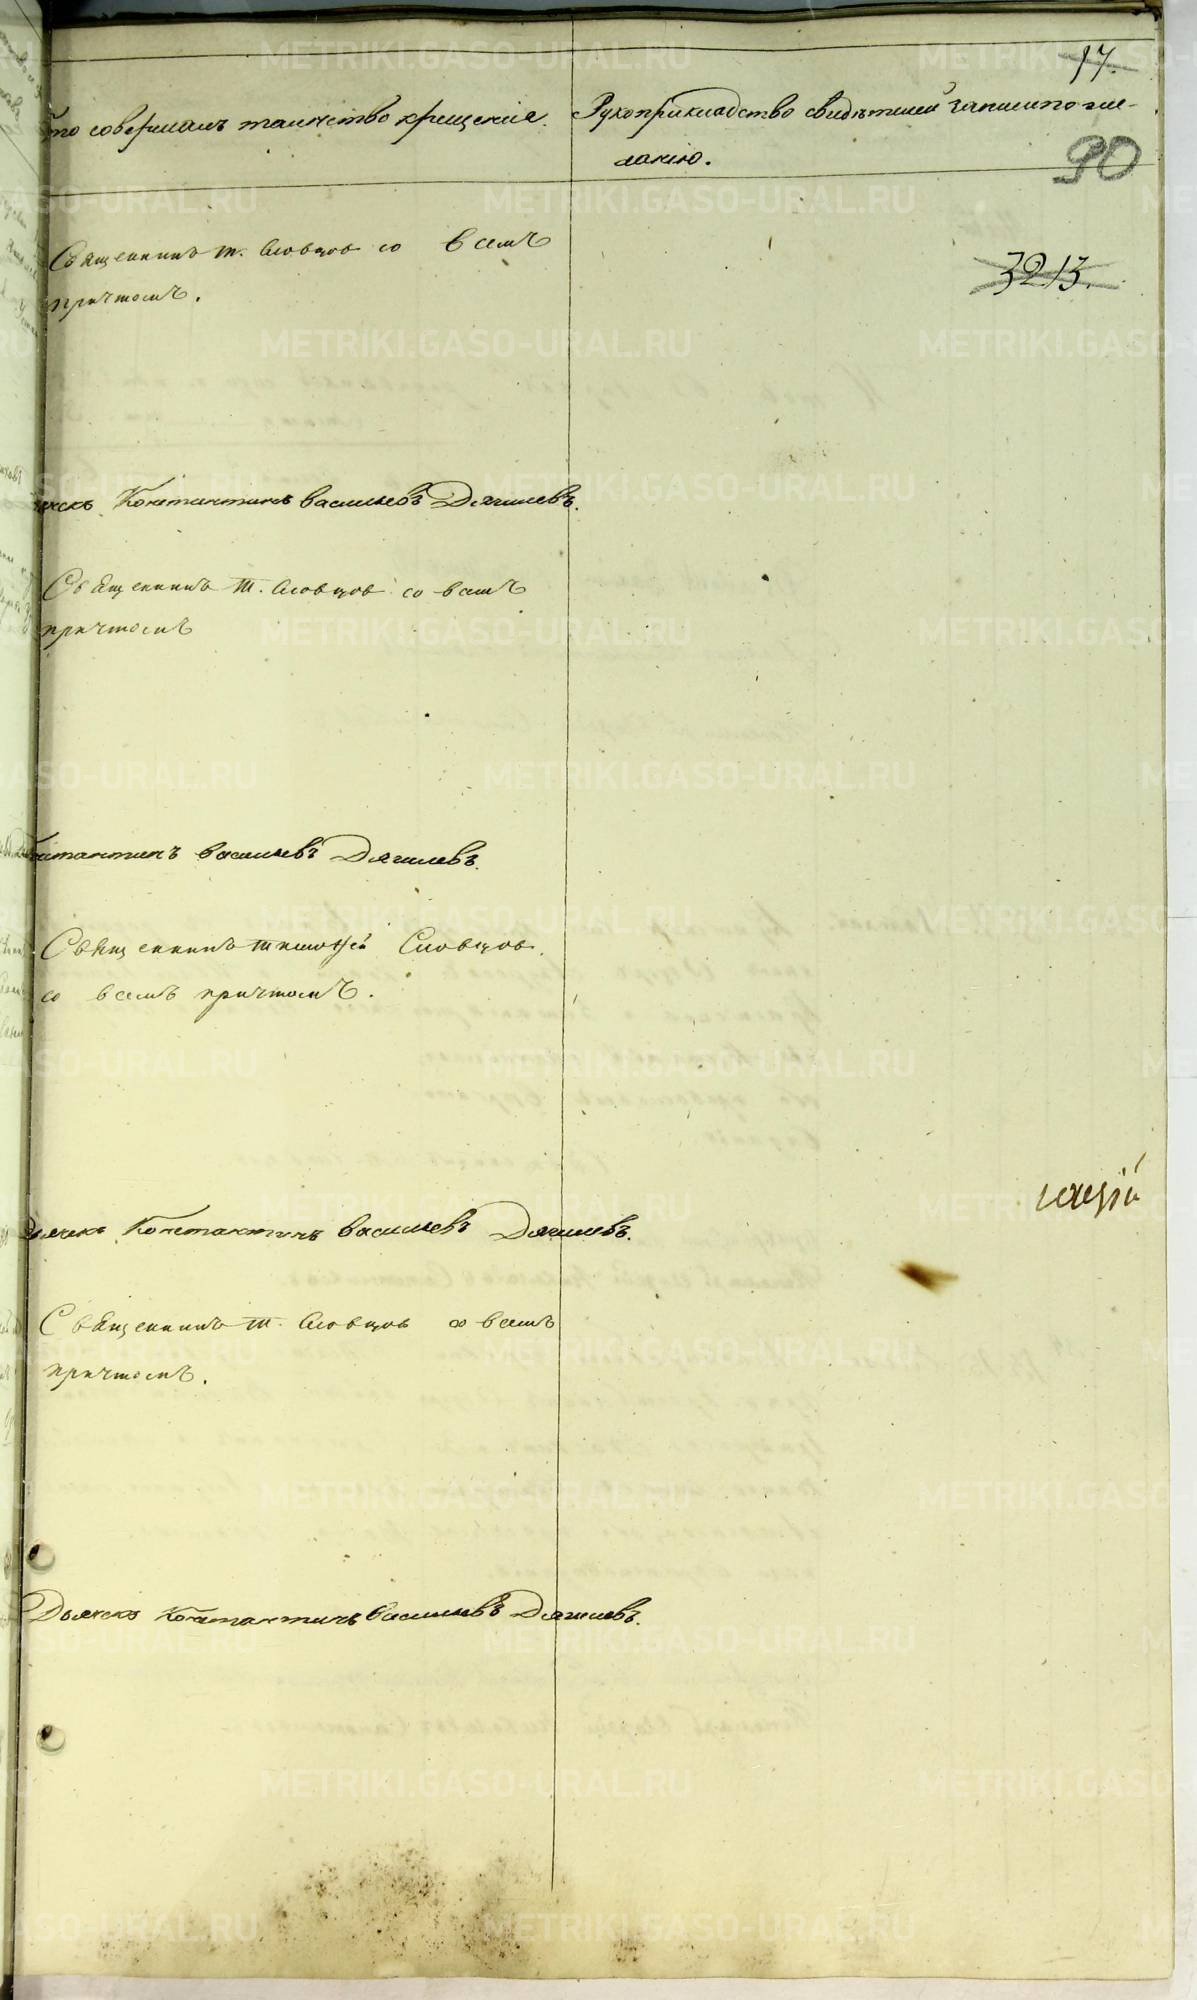 17.
Кто совершалъ таинство крещенія.
Рукоприкладство свидѣтелей записи по же-
ланію.
90
3213.
Священникъ т. Словцов со всемъ
причтомъ.
Константинъ Васильевъ Дягилевъ.
Священникъ Т. Словцов со всемъ
причтомъ
Константинъ Васильевъ Дягилевъ.
Священникъ Тимофей Словцов.
со всемъ причтомъ.
Дьячекъ Константинъ Васильевъ Дягилевъ.
Священникъ Т. Словцов со всемъ
причтомъ.
Дьячекъ Константинъ Васильевъ Дягилевъ.
METRIKI.GASO-URAL.RU